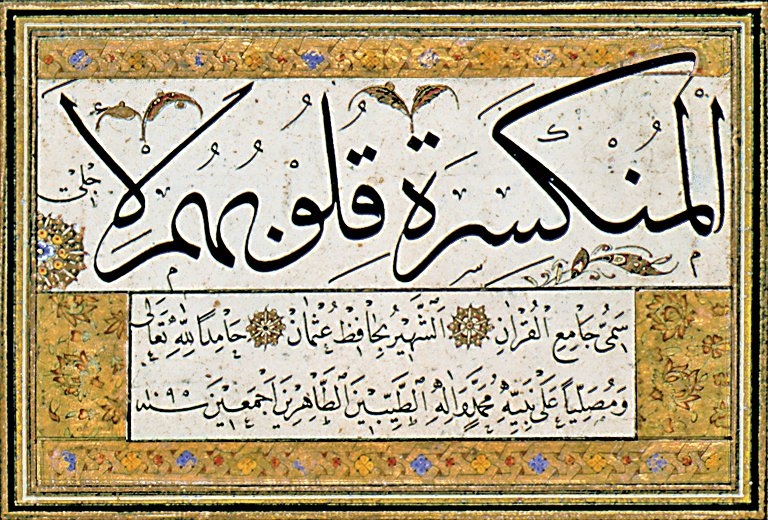 المُنْكَسِرَةِ قُلُوْبُهُمْ لِاَجْلي
سَمِىُّ جَامِعِ الْقُرْاٰنِ الشَّهِيْرُ بِحَافِظْ عُثْمَانْ حَامِدًا لِلّٰهِ تَعَالٰى
وَمُصَلِّيًا عَلٰى نَبِيِّهِ مُحَمَّدٍ وَاٰلِهِ الطَّيِّبِيْنَ الطَّاهِرِيْنَ اَجْمَعِيْنَ سنه